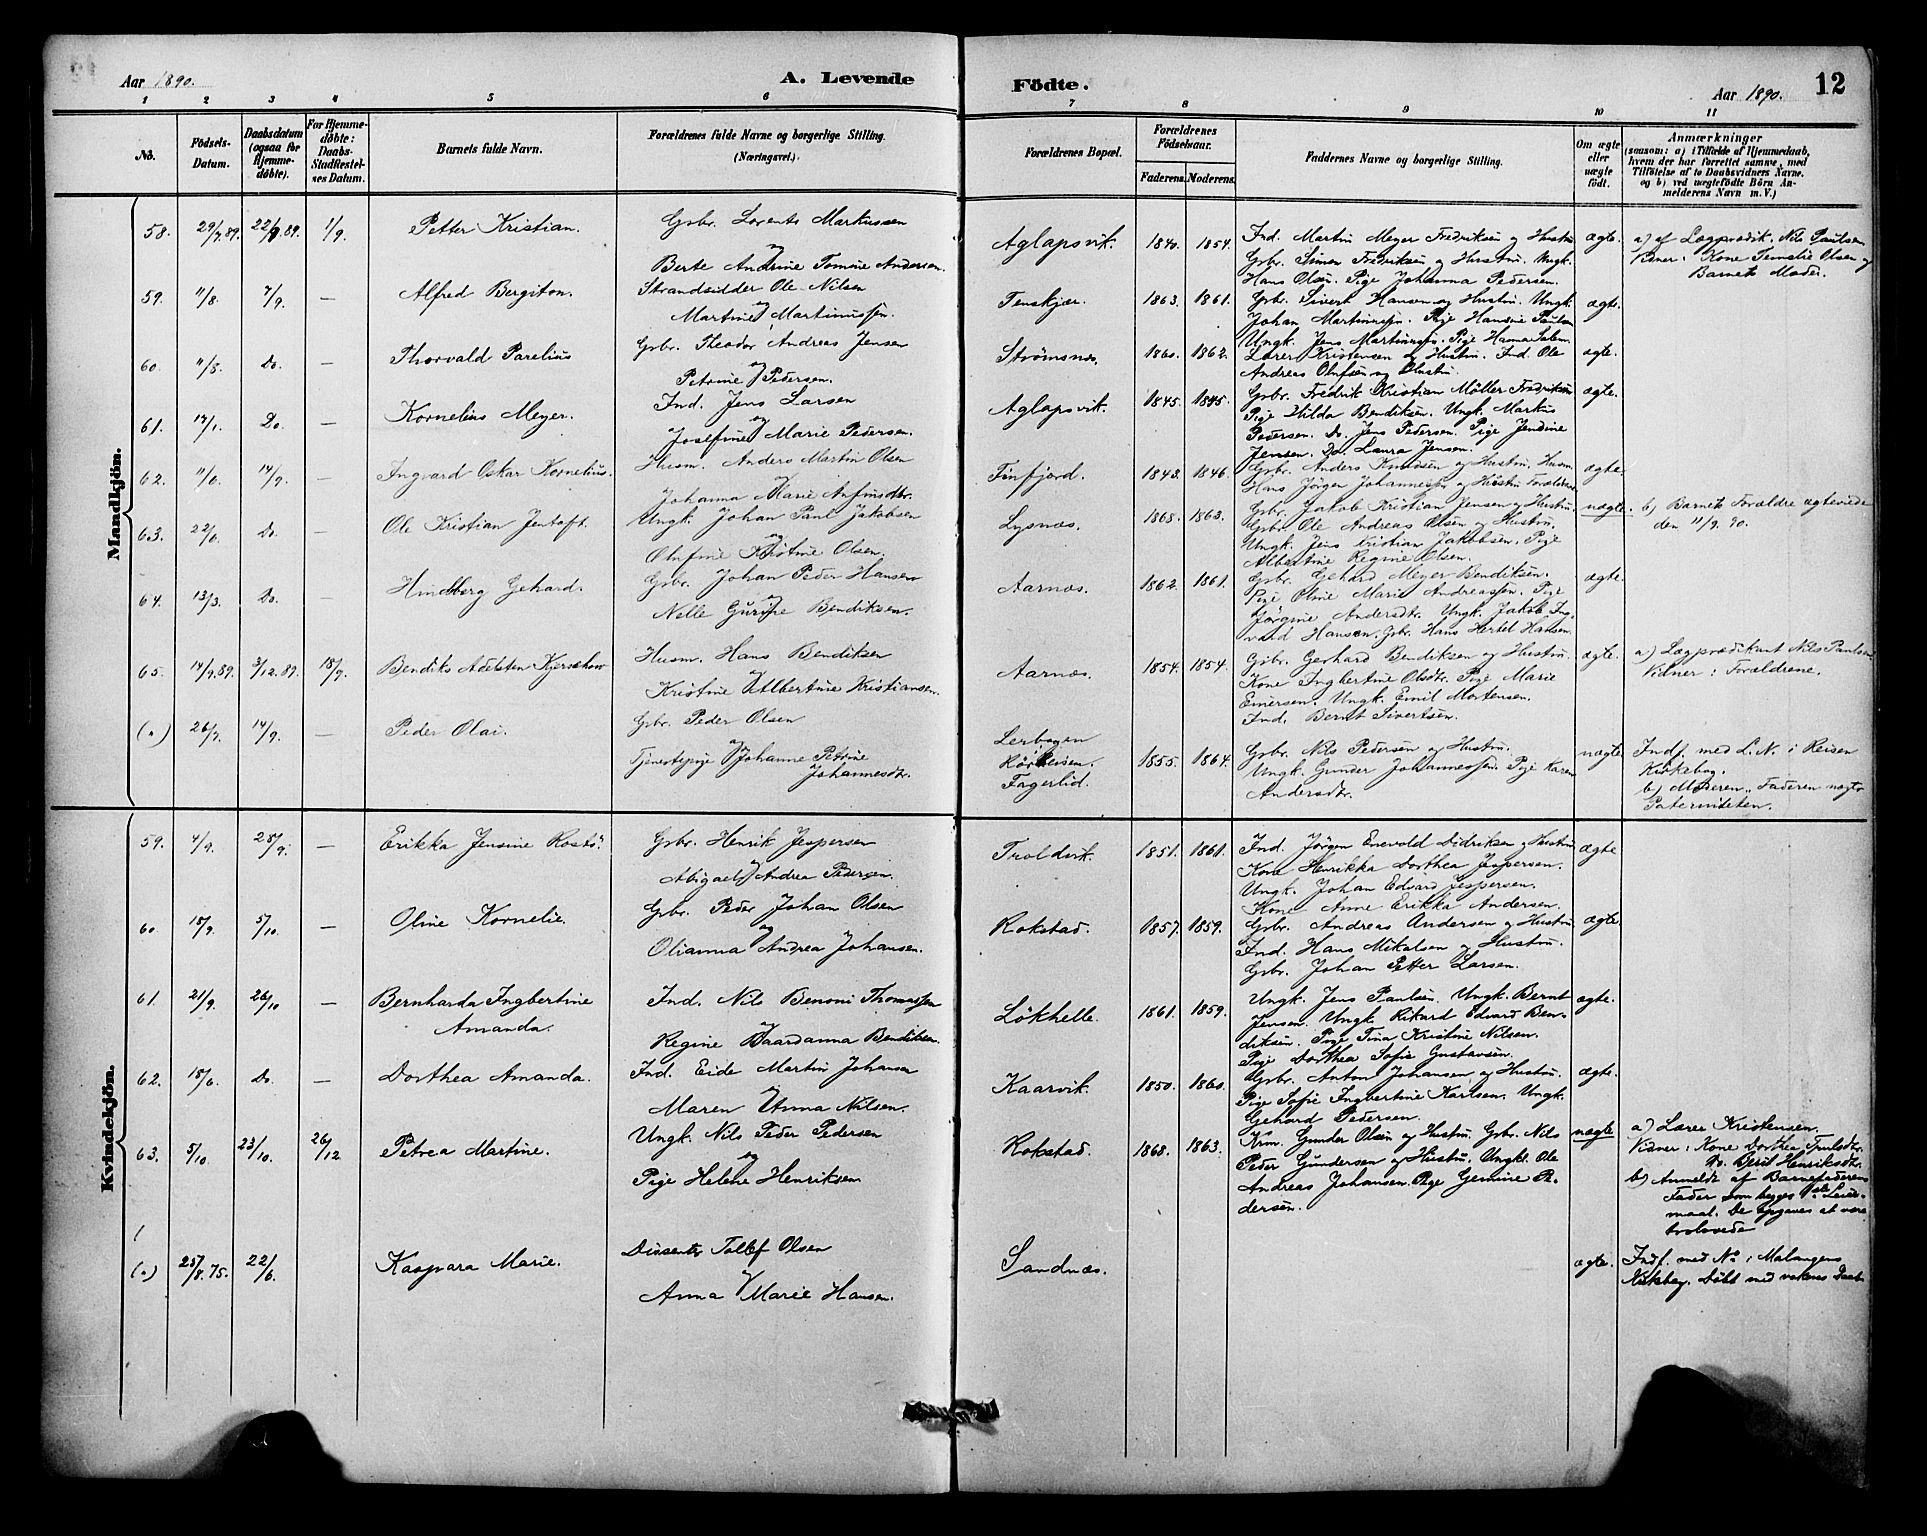 Aar 1890.
A. Levende
Födte.
Aar 1890.
12
1 2 3 4 5 6 7 8 9 10 11
No.
Födsels-Datum.
Daabsdatum (ogsaa för Hjemme-döbte).
For Hjemme-döbte: Daabs-Stadfæstel-ses Datum.
Barnets fulde Navn.
Forældrenes fulde Navne og borgerlige Stilling.
(Næringsvei.)
Forældrenes Bopæl.
Forældrenes Födselsaar.
Faderens. Moderens.
Faddernes Navne og borgerlige Stilling.
Om ægte eller uægte födt.
Anmærkninger
(saasom: a) i Tilfælde af Hjemmedaab, hvem der har forrettet samme, med Tilföielse af to Daabsvidners Navne. og b) ved uægtefödte Börn An-melderens Navn m. V.)
Mandkjön.
58. 29/7.89. 22/9.89. 1/9. Petter Kristian. Gbr. Lorents Markussen
og
Berte Andrine Tomine Andersen.
Aglapsvik. 1840. 1854.
Ind. Martin Meyer Fredriksen og Hustru
Gbr. Simon Fredriksen og Hustru. Ungk.
Hans Olsen. Pige Johanna Pedersen.
ægte.
a) af Lægprædik. Nils Paulsen
Vidner: Kone Olsen og
Barnets Moder.
59. 11/8. 7/9. — Alfred Bergiton. Strandsidder Ole Nilsen
og
Martine Martinussen.
Tenskjær. 1863. 1861.
Gbr. Sivert Hansen og Hustru. Ungk.
Johan Martinussen. Pige Hansine Paulsen
Ungk. Jens Martinussen. Pige Hanna Salom.
ægte.
60. 11/8. Do. — Thorvald Parelius Gbr. Theodor Andreas Jensen
og
Petrine Pedersen.
Strömsnæs. 1860. 1862.
Lærer Kristensen og Hustru. Ind. Ole
Andreas Olufsen og Hustru.
ægte.
61. 14/1. Do. — Kornelius Meyer. Ind. Jens Larsen
og
Josefine Marie Pedersen.
Aglapsvik. 1845. 1845.
Gbr. Fredrik Kristian Möller Fredriksen
Pige Hilda Bendiksen. Ungk. Markus
Pedersen. Do. Jens Pedersen. Pige Jendine
Jensen. Do. Laura Jensen.
ægte.
62. 11/6. 14/9. — Ingvard Oskar Kornelius. Husm. Anders Martin Olsen
og
Johanna Marie Anfinsdtr.
Finfjord. 1843. 1846.
Gbr. Anders Knudsen og Hustru. Husm.
Hans Jörgen Johannessen og Hustru. Forældrene.
ægte.
63. 22/6. Do. — Ole Kristian Jentoft. Ungk. Johan Paul Jakobsen
og
Olufine Kristine Olsen.
Lysnæs. 1868. 1863.
Gbr. Jakob Kristian Jensen og Hustru.
Gbr. Ole Andreas Olsen og Hustru.
Ungk. Jens Kristian Jakobsen. Pige
Albertine Regine Olsen.
uægte.
b) Barnets Forældre ægteviede
den 11/9. 90.
64. 13/3. Do. — Hindberg Gehard. Gbr. Johan Peder Hansen
og
Nelle Gurine Bendiksen.
Aarnæs. 1862. 1861.
Gbr. Gehard Meyer Bendiksen.
Pige Oline Marie Andreassen. Pige
Jörgine Andersdtr. Ungk. Jakob Ing-
vald Hansen. Gbr. Hans Hertel Hansen.
ægte.
65. 14/9.89. 3/12.89. 18/9. Bendiks Adelsten Husm. Hans Bendiksen
og
Kristine Albertine Kristiansen.
Aarnæs. 1854. 1854.
Gbr. Gerhard Bendiksen og Hustru.
Kone Ingbertine Olsdtr. Pige Marie
Einersen. Ungk. Emil Mortensen.
Ind. Bernt Sivertsen.
ægte.
a) Lægprædikant Nils Paulsen
Vidner: Forældrene.
(") 26/7. 14/9. — Peder Olai. Gbr. Peder Olsen
og
Tjenestepige Johanne Petrine
Johannesdtr.
Lerbogen
Fagerlid.
1855. 1864.
Gbr. Nils Pedersen og Hustru.
Ungk. Gunder Johannessen. Pige Karen
Andersdtr.
uægte
Indf. med L. N. i Reisen
Kirkebog.
b) Moderen. Faderen nægter
Paterniteten.
Kvindekjön.
59. 4/9. 28/9. — Erikka Jensine Gbr. Henrik Jespersen
og
Abigael Andrea Pedersen.
Troldvik. 1851. 1861.
Ind. Jörgen Enevold Didriksen og Hustru
Kone Henrikka Dorthea Jespersen.
Ungk. Johan Edvard Jespersen.
Kone Anne Erikka Andersen.
ægte
60. 18/9. 5/10. — Oline Kornelie. Gbr. Peder Johan Olsen
og
Olianna Andrea Johansen.
Rokstad. 1857. 1859.
Gbr. Andreas Andersen og Hustru
Ind. Hans Mikalsen og Hustru.
Gbr. Johan Petter Larsen.
ægte
61. 21/9. 26/10. — Bernharda Ingbertine
Amanda.
Ind. Nils Benoni Thomassen
og
Regine Baardanna Bendiksen.
Lökhelle. 1861. 1859.
Ungk. Jens Paulsen. Ungk. Bernt
Jensen. Ungk. Rikard Edvard Ben-
diksen. Pige Tina Kristine Nilsen.
Pige Dorthea Sofie Gustavsen.
ægte.
62. 18/6. Do. — Dorthea Amanda. Ind. Eide Martin Johansen
og
Maren Anna Nilsen.
Kaarvik. 1850. 1860.
Gbr. Anton Johansen og Hustru.
Pige Sofie Ingbertine Karlsen. Ungk.
Gehard Pedersen.
ægte.
63. 5/10. 23/10. 26/12 Petrea Martine. Ungk. Nils Peder Pedersen
og
Pige Helene Henriksen
Rokstad. 1868. 1863.
Krm. Gunder Olsen og Hustru. Gbr. Nils
Peder Gundersen og Hustru. Ungkl. Ole
Andreas Johansen. Pige Gemine Pe-
dersen.
uægte
a) Lærer Kristensen.
Vidner: Kone Dorthea
Do. Berit Henriksdtr.
b) Anmeldt af Barnefaderens
Fader som begges 1ste Leier-
maal. De opgaves at være
trolovede
(") 25/8.75. 22/6. Kaspara Marie. Dissenter Tollef Olsen
og
Anna Marie Hansen.
Sandnæs.
ægte.
Indf. med No i Malangens
Kirkebog. Döbt med voksnes Daab